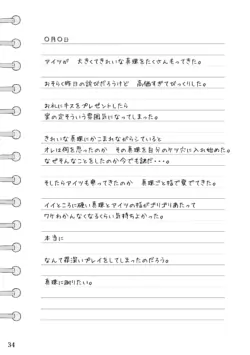 〇月〇日
アイツが 大きくてきれいな真珠をたくさんもってきた。
おそらく昨日の詫びだろうけど 高価すぎてびっくりした。
お礼にキスをプレゼントしたら
案の定そういう雰囲気になってしまった。
きれいな真珠にかこまれながらしていると
オレは何を思ったのか その真珠を自分のケツ穴に入れ始めた。
なぜそんなことをしたのか今でも謎だ・・・。
そしたらアイツも乗ってきたのか 真珠ごと指で愛でてきた。
イイところに硬い真珠とアイツの指がゴリゴリあたって
ワケわかんなくなるくらい気持ちよかった。
本当に
なんて罪深いプレイをしてしまったのだろう。
真珠に謝りたい。
34